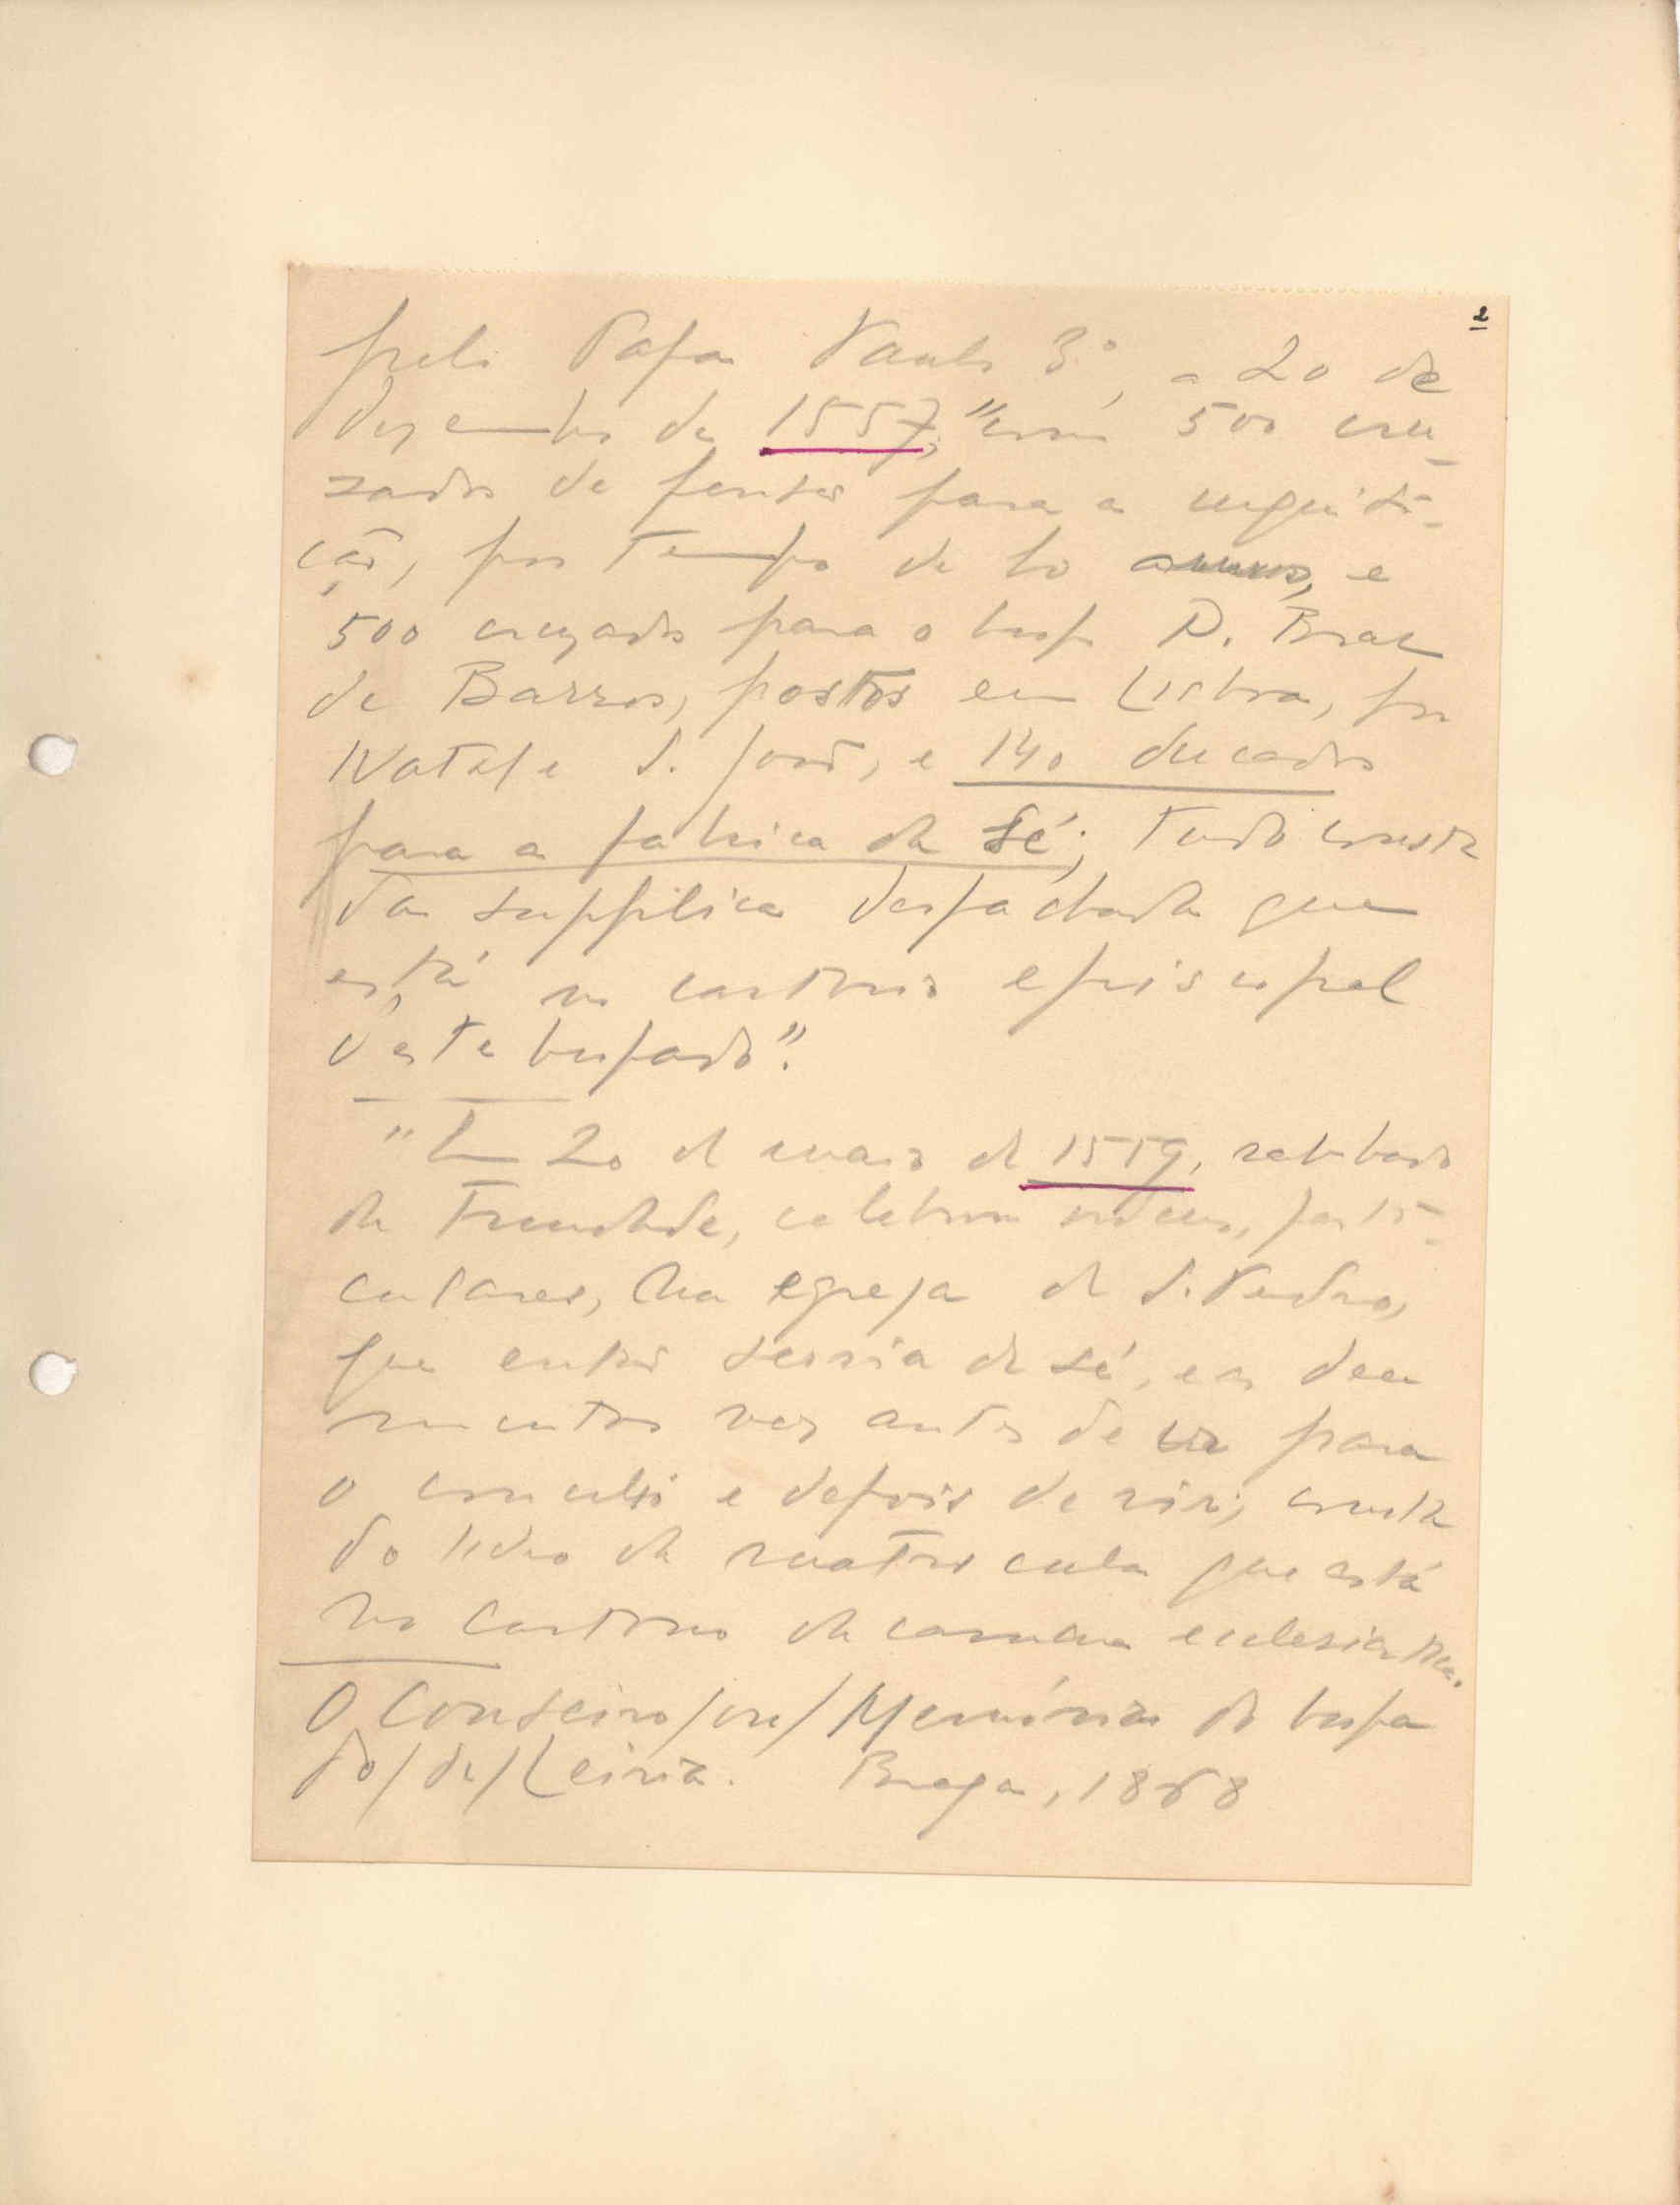 2
pelo Papa Paulo 3º, a 20 de
dezembro de 1557, "com 500 cru-
zados de pensão para a inquisi-
ção, por tempo de annos, e
500 cruzados para o bispo D. Braz
de Barros, postos em Lisboa, por
Natal e S. João, e 140 ducados
para a fabrica da Sé; tudo consta
da supplica despachada que
está no cartorio episcopal
d'este bispado".
"Em 20 de maio de 1559, sabbado
da Trindade, celebrou ordens, parti-
culares, na egreja de S. Pedro,
que então servia de sé, e as deu
muitas vez antes de ir para
o concilio e depois de vir; consta
do livro da matricula que está
no cartorio da camara ecclesiastica.
O Couseiro/ou/Memórias do bispa
do/de/Leiria. Braga, 1868